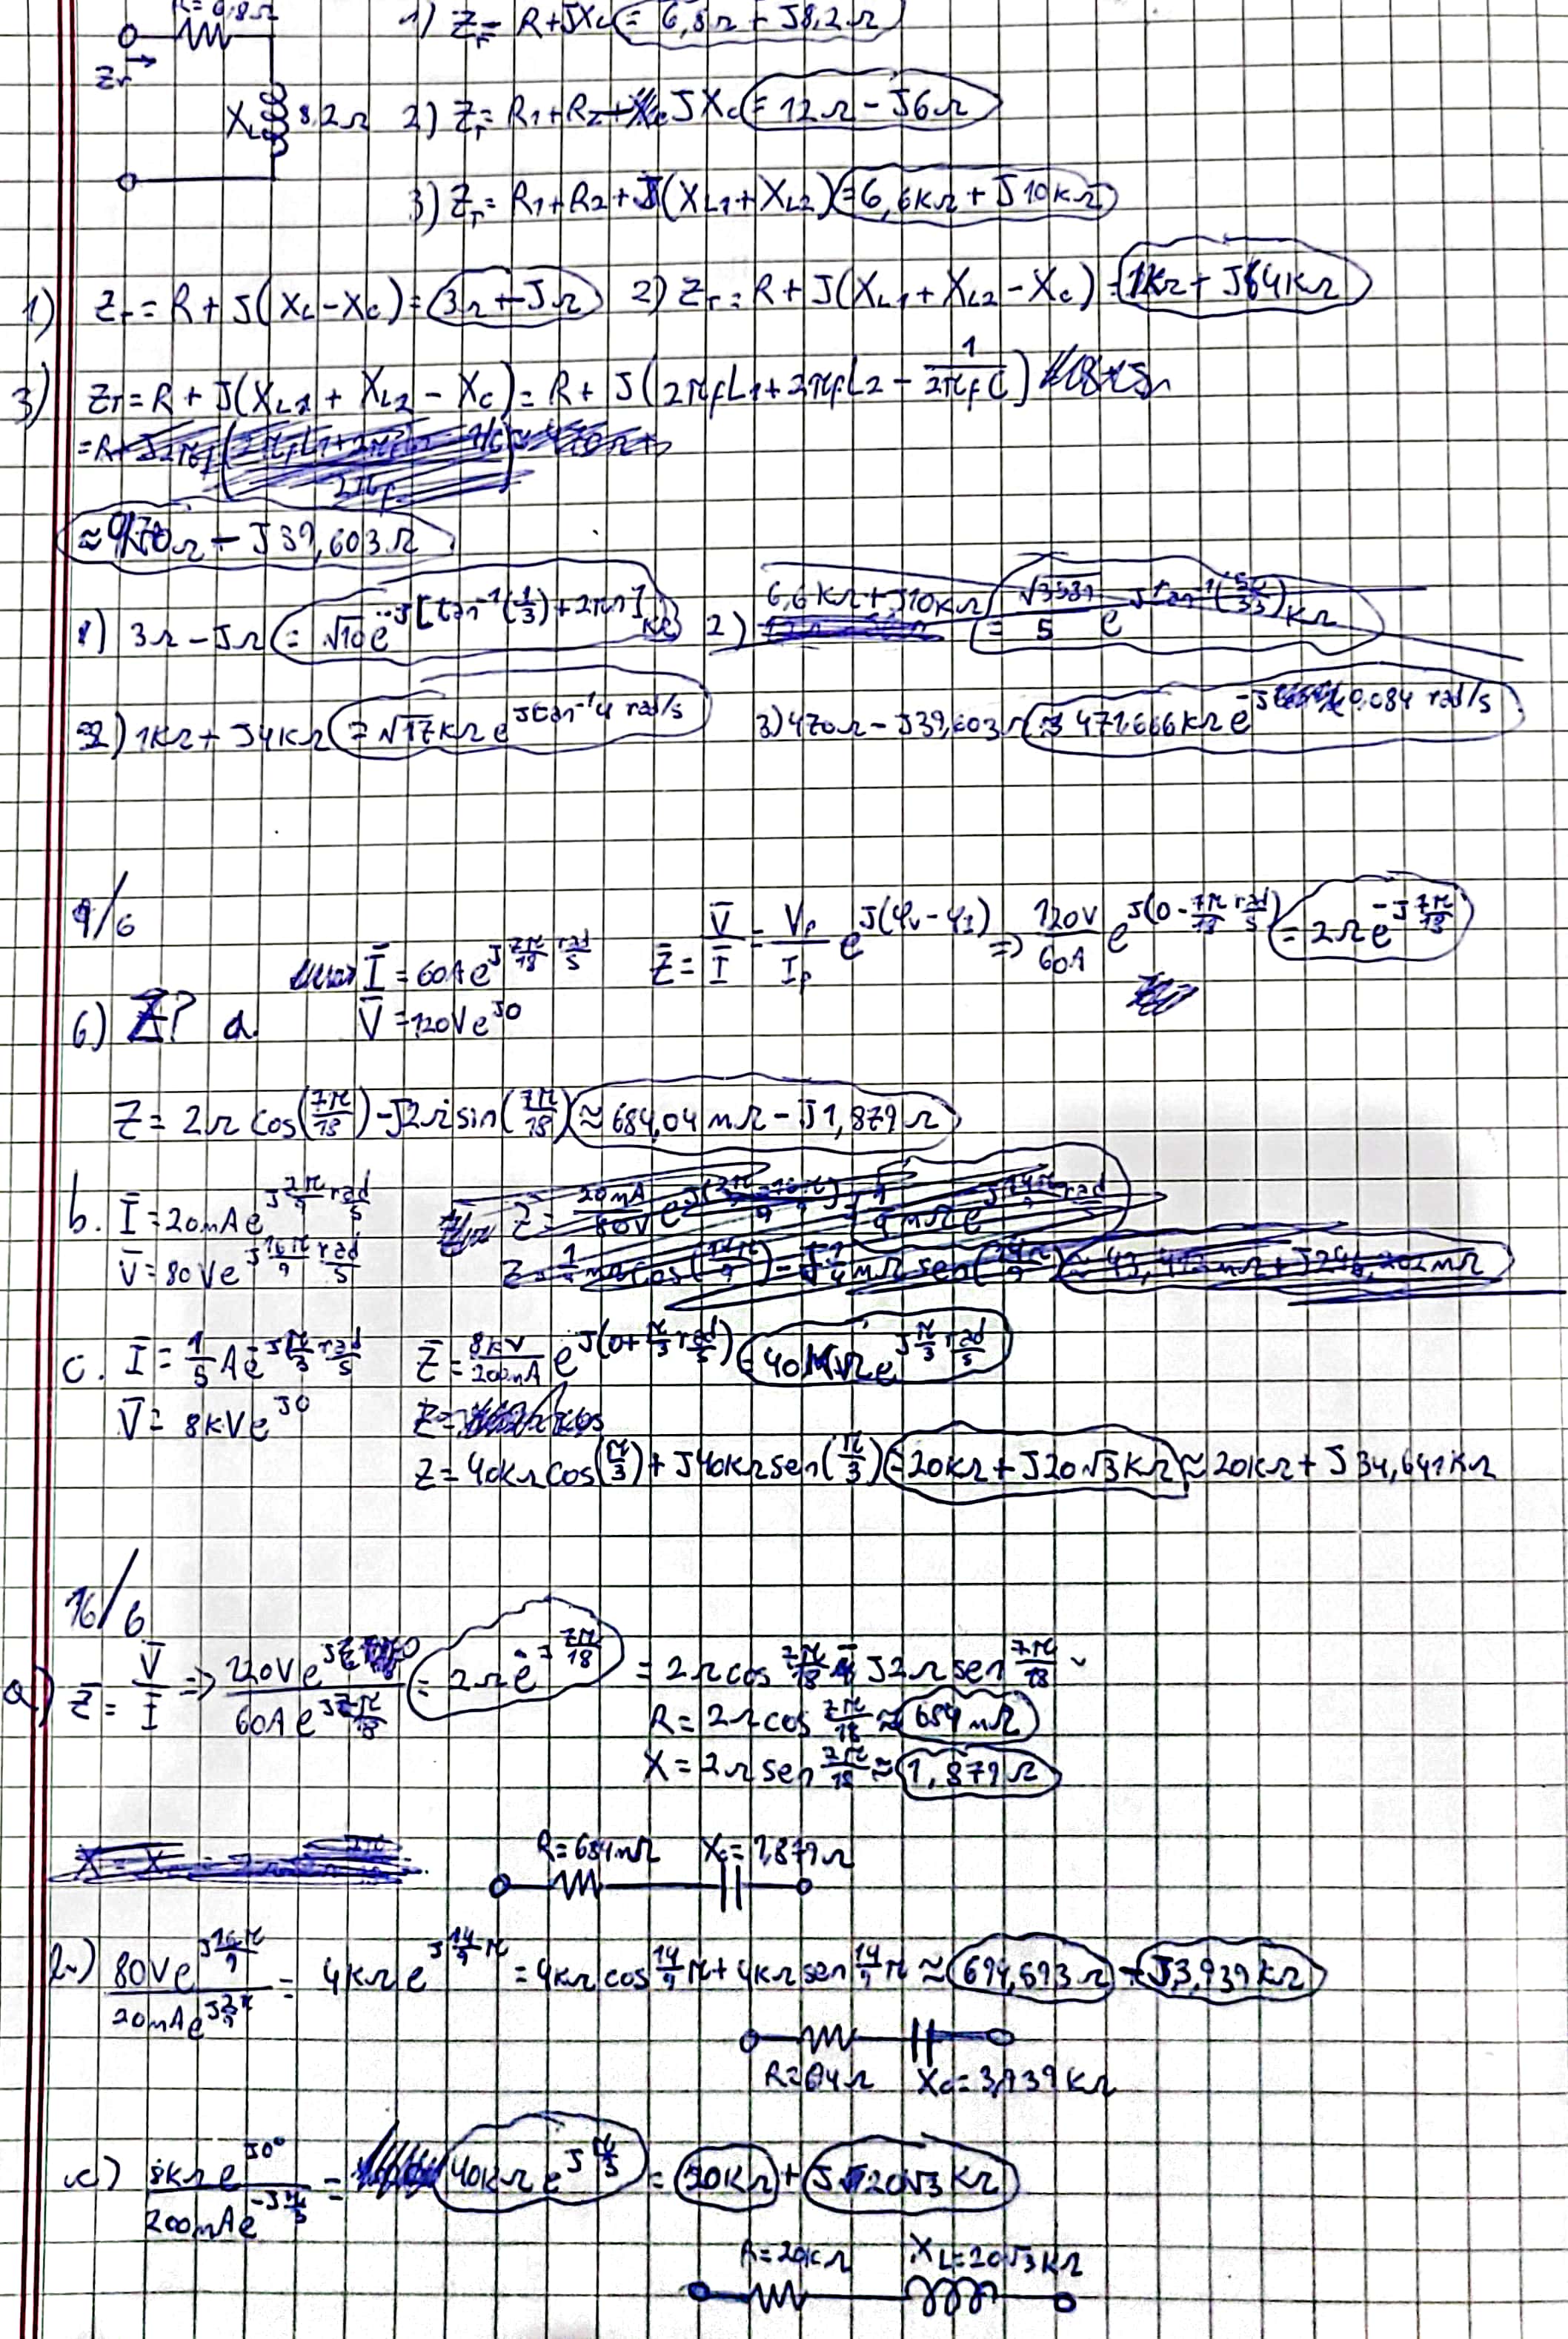 R = 6,8Ω
1) Z_T = R + JX_L = 6,8Ω + J8,2Ω
Z_T
X_L 8,2Ω
2) Z_T = R1 + R2 + JX_C = 12Ω - J6Ω
3) Z_T = R1 + R2 + J(X_L1 + X_L2) = 6,6kΩ + J10kΩ
1) Z_T = R + J(X_L - X_C) = 3Ω - JΩ 2) Z_T = R + J(X_L1 + X_L2 - X_C) = 1kΩ + J4kΩ
3) Z_T = R + J(X_L1 + X_L2 - X_C) = R + J(2πfL1 + 2πfL2 - 1/2πfC)
≈ 470Ω - J39,603Ω
1) 3Ω - JΩ = √10 e^-J[tan^-1(1/3) + 2πn] 2) 6,6kΩ + J10kΩ = √3589/5 e^Jtan^-1(50/33) kΩ
2) 1kΩ + J4kΩ = √17 kΩ e^Jtan^-1 4 rad/s 3) 470Ω - J39,603Ω ≈ 471,666kΩ e^-J0,084 rad/s
9/6
Ī = 60A e^J7π/18 rad/s Z̄ = V̄/Ī = Vp/Ip e^J(φv - φI) => 120V/60A e^J(0 - 7π/18 rad/s) = 2Ω e^-J7π/18
6) Z? a. V̄ = 120V e^J0
Z = 2Ω cos(7π/18) - J2Ω sin(7π/18) ≈ 684,04mΩ - J1,879Ω
b. Ī = 20mA e^J2π/9 rad/s
V̄ = 80V e^J16π/9 rad/s
c. Ī = 1/5 A e^-Jπ/3 rad/s Z̄ = 8kV/200mA e^J(0 + π/3 rad/s) = 40kΩ e^Jπ/3 rad/s
V̄ = 8kV e^J0
Z = 40kΩ cos(π/3) + J40kΩ sen(π/3) = 20kΩ + J20√3kΩ ≈ 20kΩ + J34,641kΩ
16/6
a) Z̄ = V̄/Ī => 120V e^J0 / 60A e^J7π/18 = 2Ω e^-J7π/18 = 2Ω cos 7π/18 - J2Ω sen 7π/18
R = 2Ω cos 7π/18 ≈ 684mΩ
X = 2Ω sen 7π/18 ≈ 1,879Ω
R = 684mΩ X_C = 1,879Ω
b) 80V e^J16π/9 / 20mA e^J2/9π = 4kΩ e^J14/9π = 4kΩ cos 14/9π + 4kΩ sen 14/9π ≈ 694,593Ω - J3,939kΩ
R = 694Ω X_C = 3,939kΩ
c) 8kΩ e^J0° / 200mA e^-Jπ/3 = 40kΩ e^Jπ/3 = 20kΩ + J20√3kΩ
R = 20kΩ X_L = 20√3kΩ